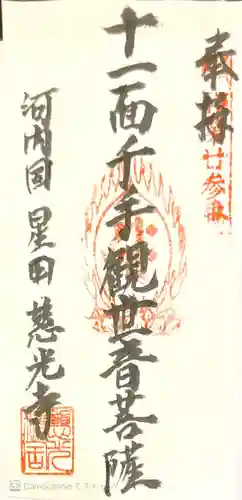 奉拝
廿参番
十一面千手観世音菩薩
河内国 星田 慈光寺
CamScanner で